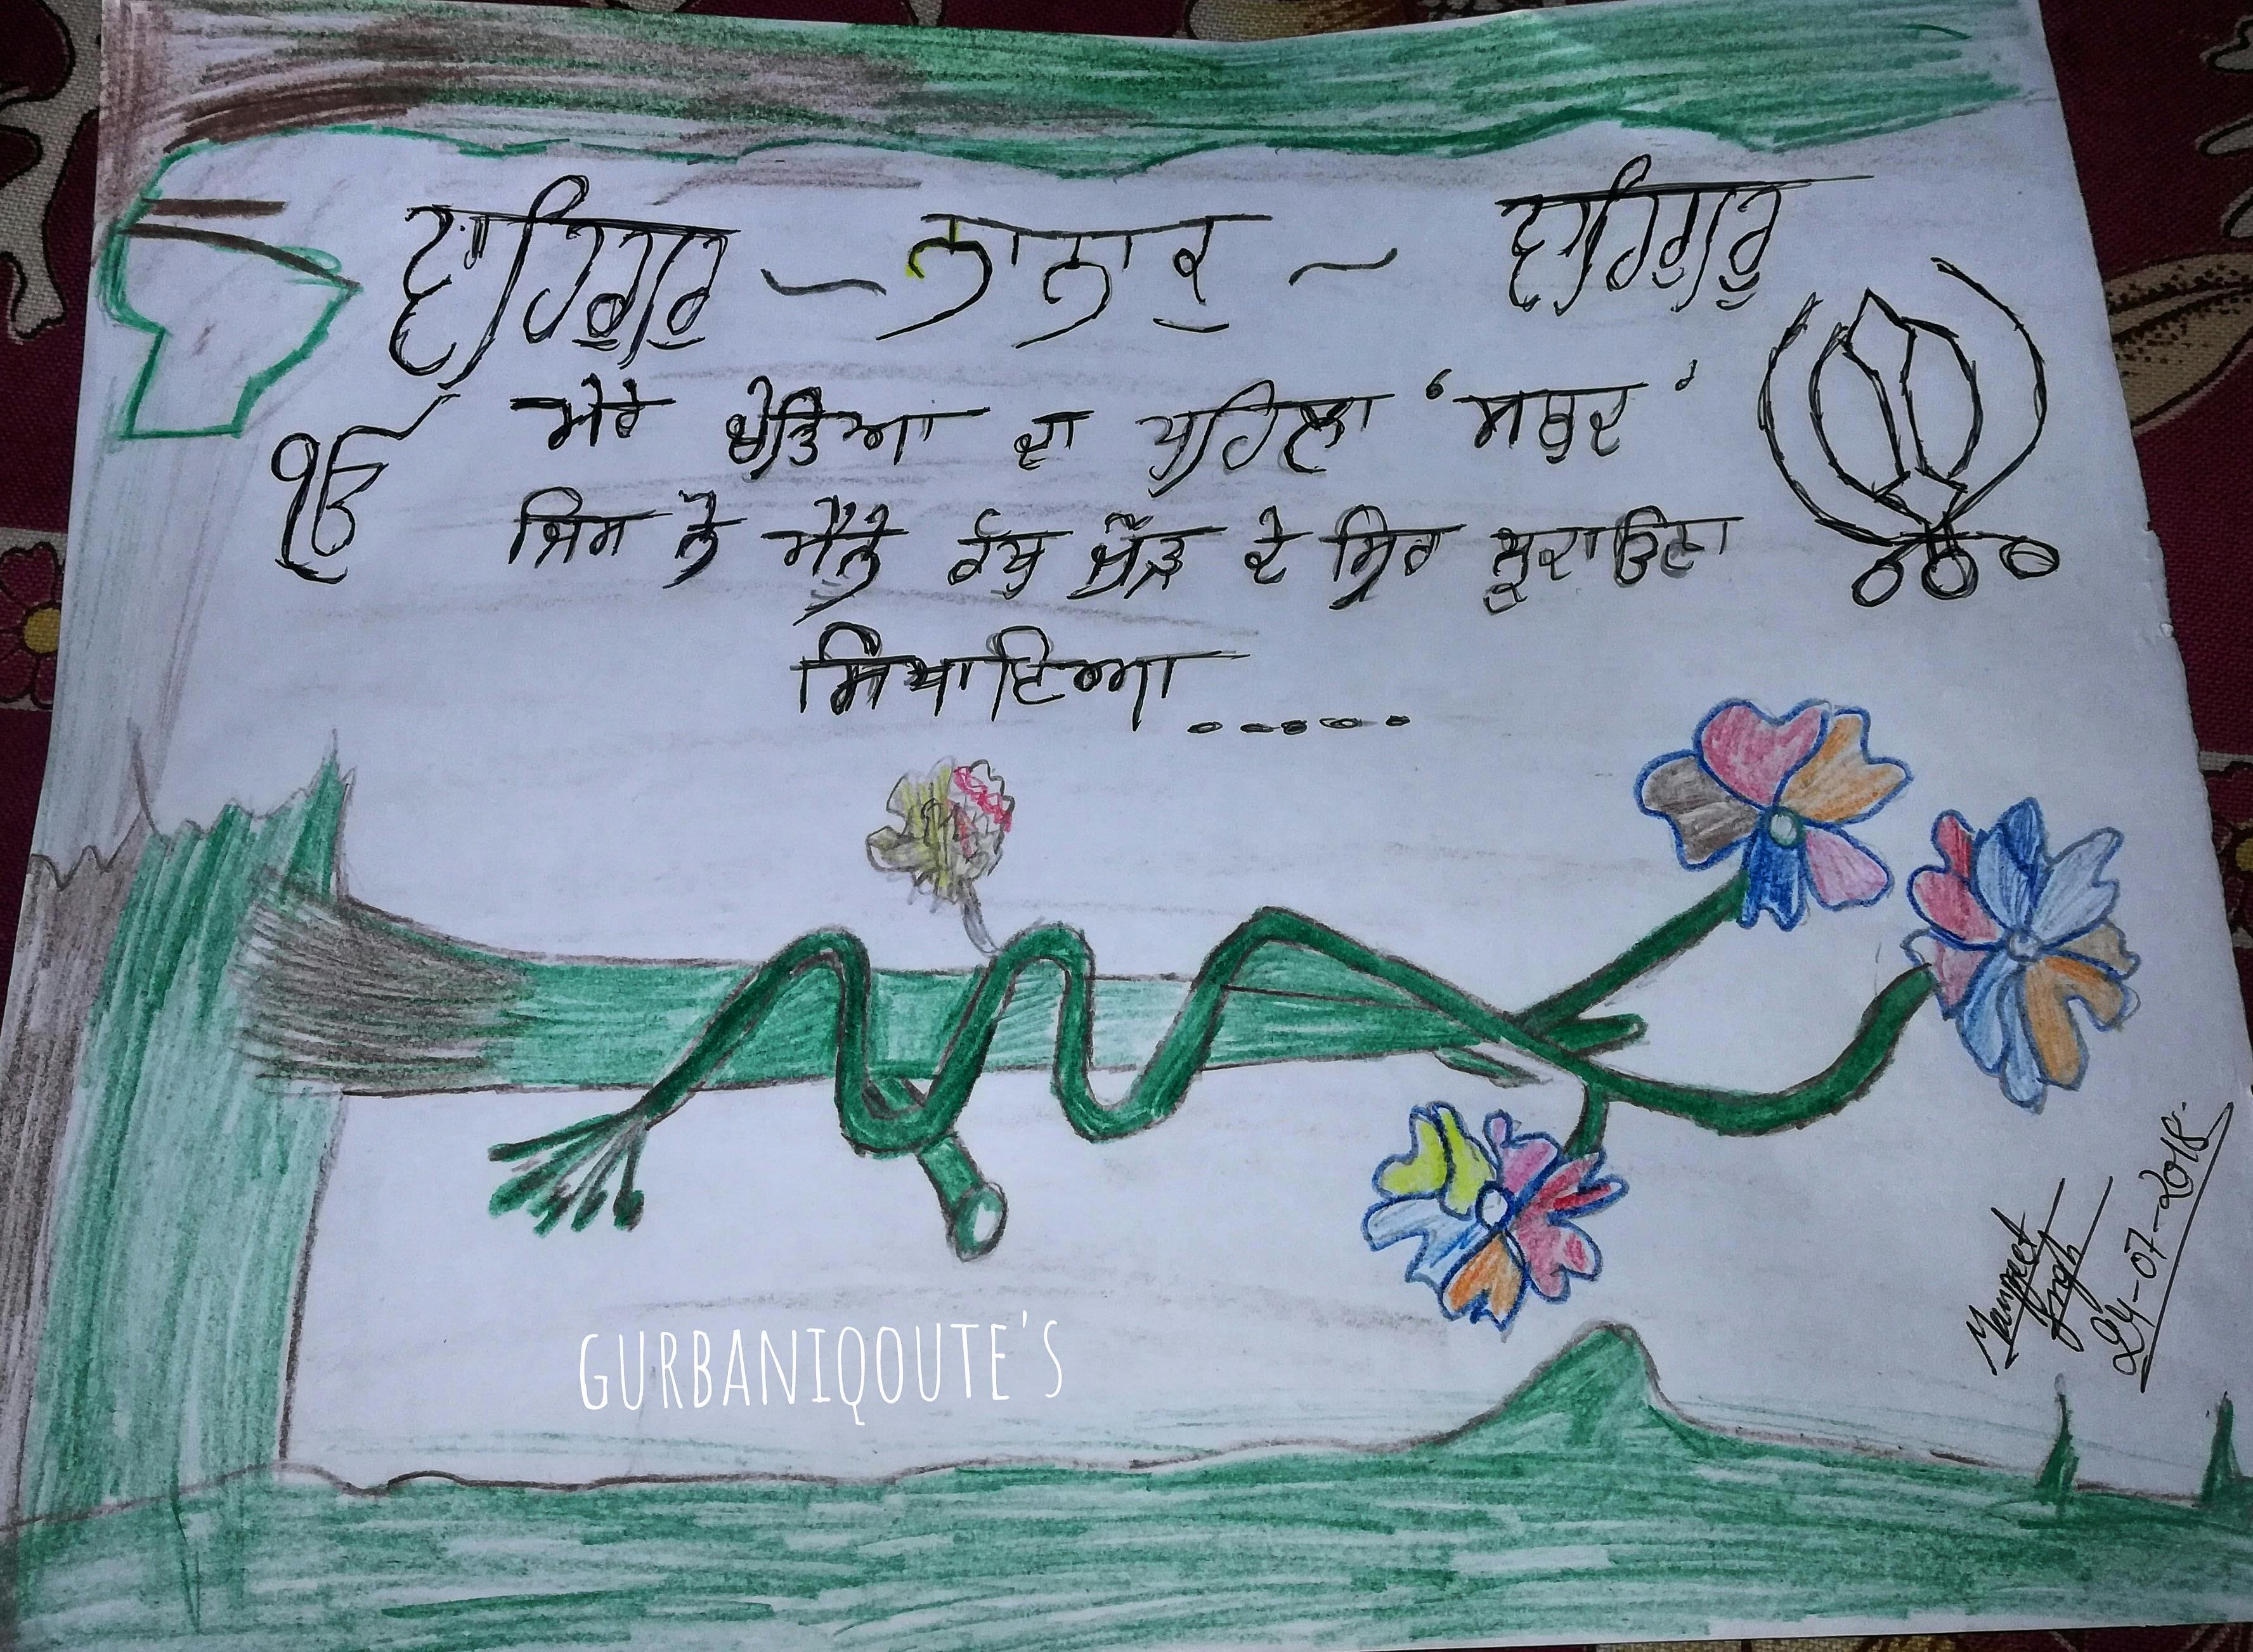 ਵਾਹਿਗੁਰੂ ~ ਨਾਨਕ ~ ਵਾਹਿਗੁਰੂ
ੴ ਮੇਰੇ ਦਾ ਪਹਿਲਾ 'ਸਬਦ'
ਜਿਸ ਨੇ ਮੈਨੂੰ ਹੱਥ ਜੋੜ ਕੇ ਸਿਰ ਝੂਕਾਉਣਾ
ਸਿਖਾਇਆ.....
GURBANIQOUTE'S
Manpreet
Singh
24-07-2018.